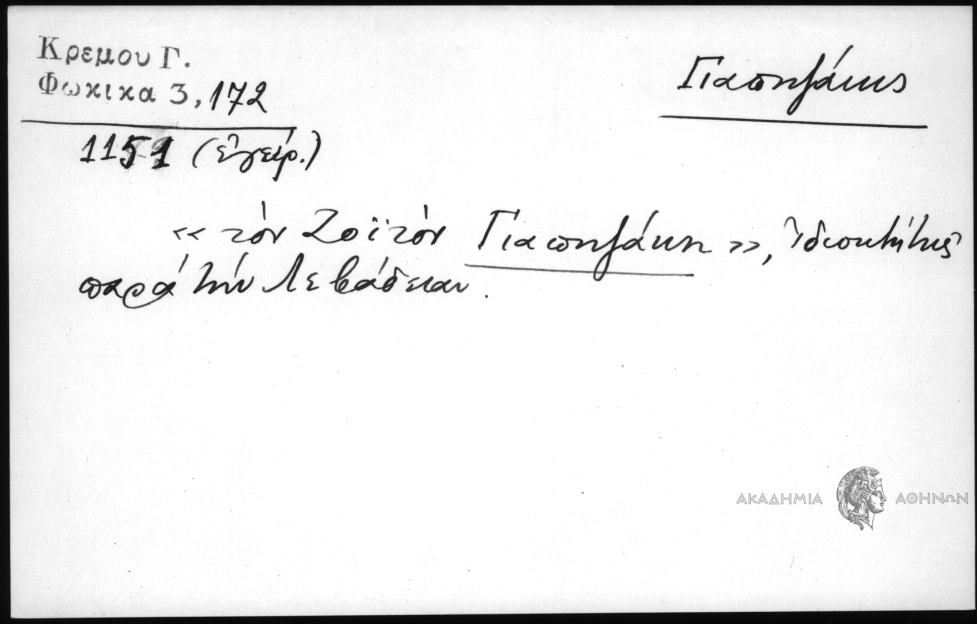 Κρεμου Γ.
Φωκικα 3, 172
Γιαπηζάκης
1151 (ἔγγρ.)
« τὸν Ζοϊτὸν Γιαπηζάκη », ἰδιοκτήτης
παρὰ τὴν Λεβάδειαν.
ΑΚΑΔΗΜΙΑ ΑΘΗΝΩΝ